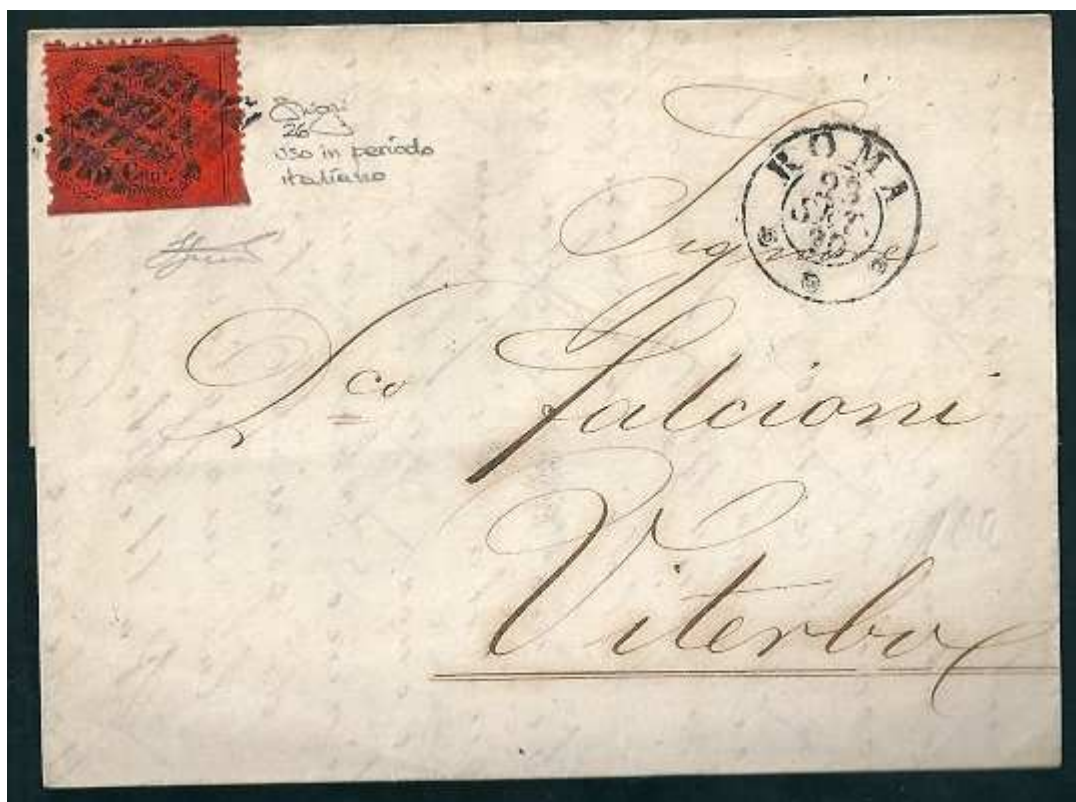 Cent.
26
uso in periodo
italiano
ROMA
23
SET
70
Signore
Dco Falcioni
Viterbo